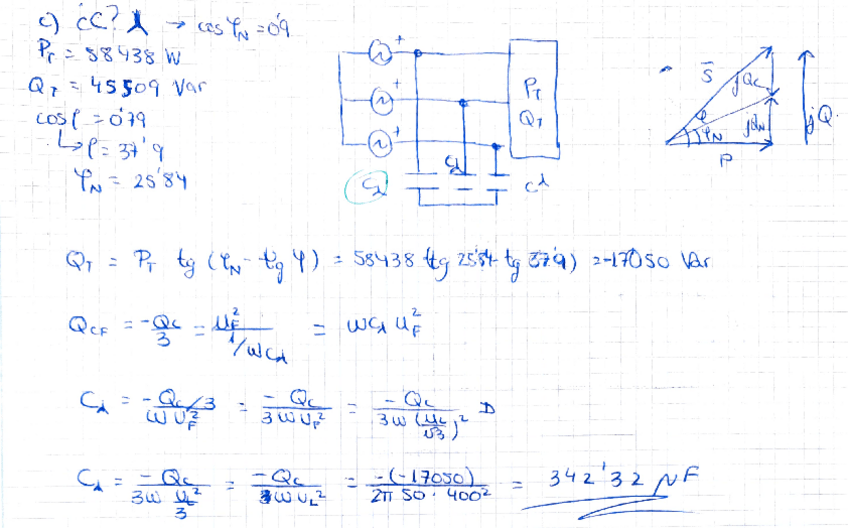 c) ¿C? ⅄ → cos φN = 0'9
PT = 58438 W
QT = 45509 Var
cos φ = 0'79
↳ φ = 37'9
φN = 25'84
+
+
+
PT
QT
Cλ
Cλ
Cλ
S̄
jQc
jQN
jQ
φ
φN
P
QT = PT tg (φN - tg φ) = 58438 (tg 25'84 - tg 37'9) = -17050 Var
QCF = -Qc/3 = UF²/(1/ωCλ) = ωCλ UF²
Cλ = (-Qc/3)/(ω UF²) = -Qc/(3ω UF²) = -Qc/(3ω (UL/√3)²) D
Cλ = -Qc/(3ω UL²/3) = -Qc/(ω UL²) = -(-17050)/(2π 50 · 400²) = 342'32 μF